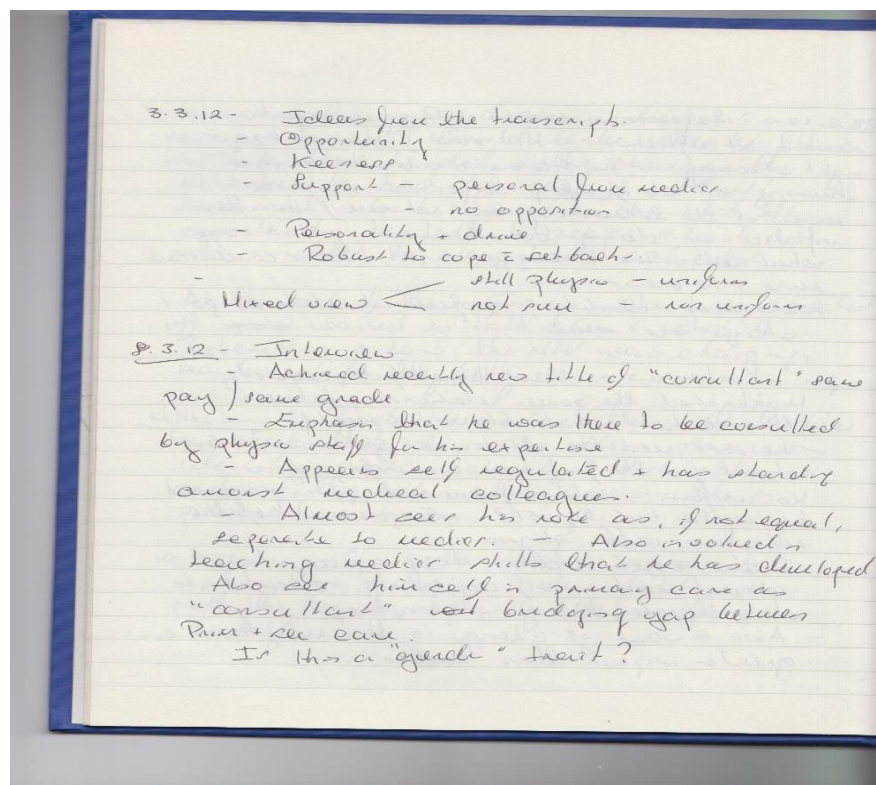 3.3.12 - Ideas from the transcripts.
- Opportunity
- Keeness
- Support - personal from medics.
- no opposition
- Personality + drive
- Robust to cope c̄ setbacks.
-
still physio - uniform
Mixed view < not sure - non uniform
8.3.12 - Interview
- Achieved recently new title of "consultant" same
pay / same grade
- Emphasis that he was there to be consulted
by physio staff for his expertise
- Appears self regulated + has standing
amonst medical colleagues.
- Almost sees his role as, if not equal,
seperate to medics. - Also involved in
teaching medics skills that he has developed
Also see himself in primary care as
"consultant" bridging gap between
Prim + sec care.
Is this a "gender" trait?